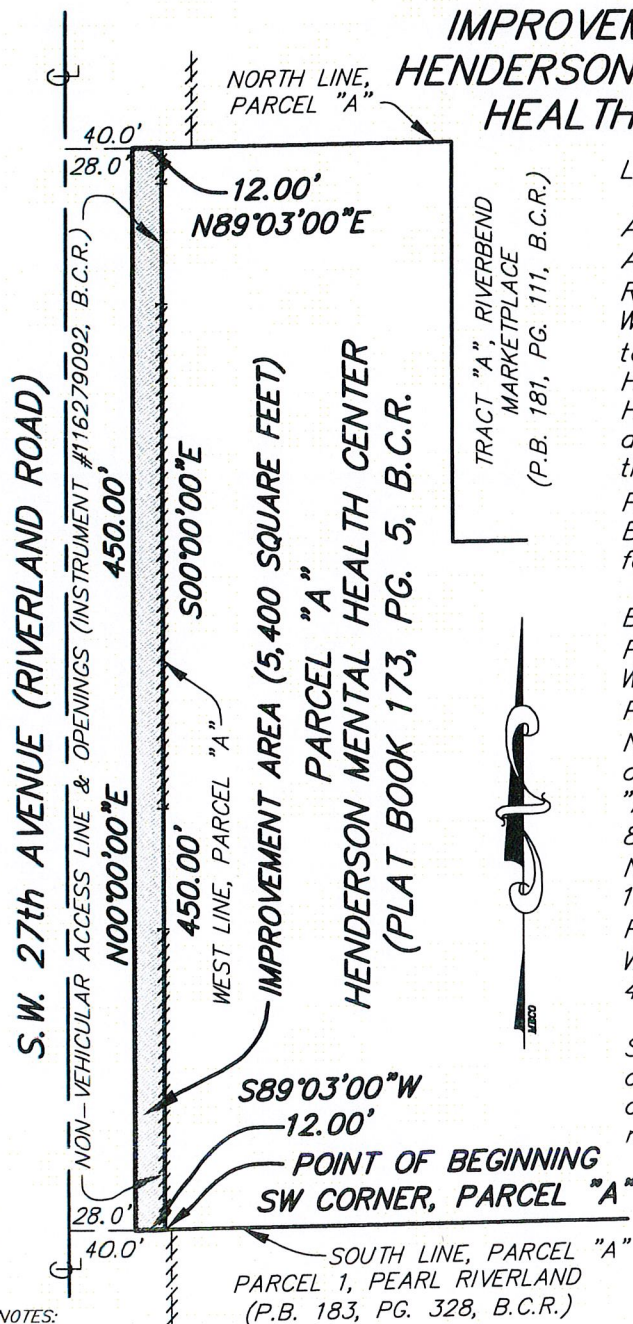 IMPROVEM
HENDERSON
HEALTH
NORTH LINE,
PARCEL "A"
40.0'
28.0'
12.00'
N89°03'00"E
S.W. 27th AVENUE (RIVERLAND ROAD)
NON-VEHICULAR ACCESS LINE & OPENINGS (INSTRUMENT #116279092, B.C.R.)
450.00'
N00°00'00"E
S00°00'00"E
450.00'
WEST LINE, PARCEL "A"
IMPROVEMENT AREA (5,400 SQUARE FEET)
PARCEL "A"
HENDERSON MENTAL HEALTH CENTER
(PLAT BOOK 173, PG. 5, B.C.R.
TRACT "A", RIVERBEND
MARKETPLACE
(P.B. 181, PG. 111, B.C.R.)
MECO
S89°03'00"W
12.00'
POINT OF BEGINNING
SW CORNER, PARCEL "A"
28.0'
40.0'
SOUTH LINE, PARCEL "A"
PARCEL 1, PEARL RIVERLAND
(P.B. 183, PG. 328, B.C.R.)
NOTES: